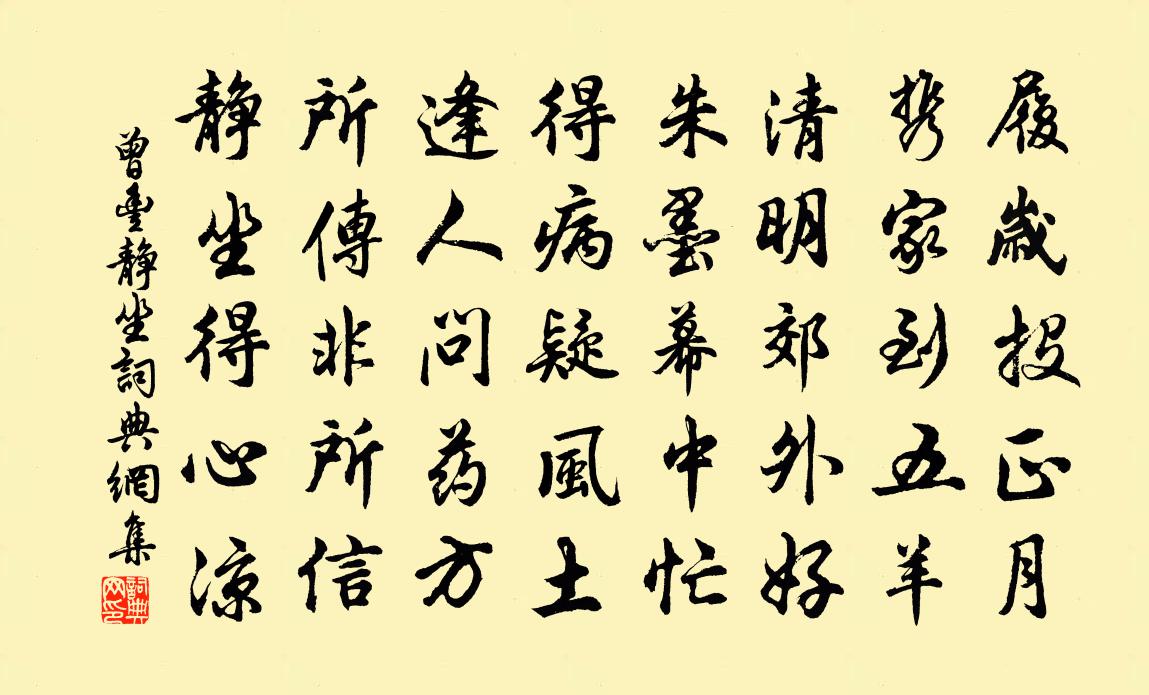 履歲投正月
携家到五羊
清明郊外好
朱墨幕中忙
得病疑風土
逢人問药方
所傳非所信
静坐得心涼
曾豊静坐詞典網集
詞典网印